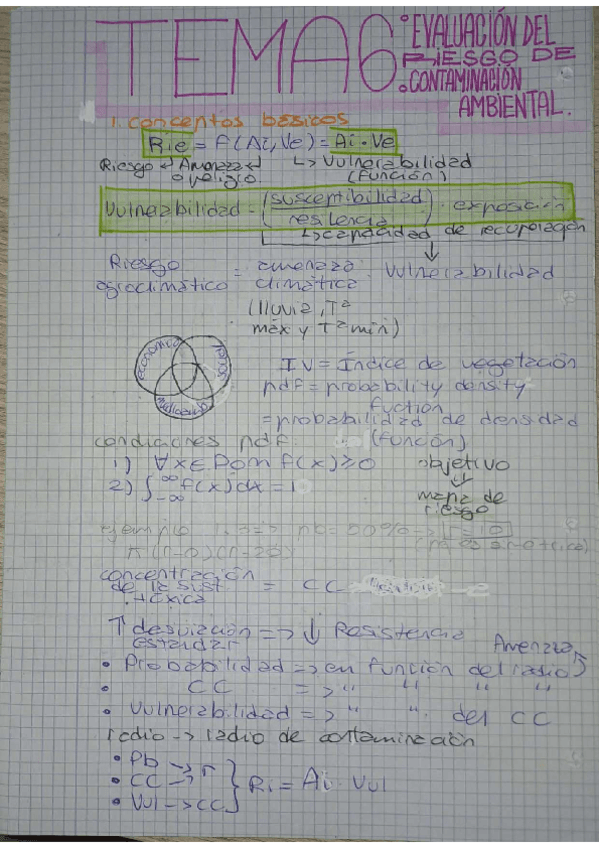 TEMA 6
° EVALUACIÓN DEL
RIESGO DE
° CONTAMINACIÓN
AMBIENTAL.
1. conceptos básicos
Rie = f(Ai, Ve) = Ai · Ve
Riesgo ↵ Amenaza ↵ ↳ Vulnerabilidad
o peligro (función)
Vulnerabilidad = (susceptibilidad / resilencia) · exposición
↳ capacidad de recuperación
Riesgo agroclimático = amenaza climática · Vulnerabilidad
(lluvia, Tª
máx y Tª min)
económico social
ambiental
IV = Índice de vegetación
pdf = probability density
fuction
= probabilidad de densidad
(función)
condiciones pdf
1) ∀x ∈ Dom f(x) ≥ 0
2) ∫_{-∞}^{∞} f(x) dx = 1
objetivo
↓
mapa de
riesgo
ejemplo
concentración
de la sust
tóxica
= CC
↑ desviación estándar => ↓ Resistencia
Amenaza
• Probabilidad => en función del radio
• CC => " " " "
• Vulnerabilidad => " " del CC
radio -> radio de contaminación
• Pb -> r
• CC -> r
• Vul -> CC
} Ri = Ai · Vul